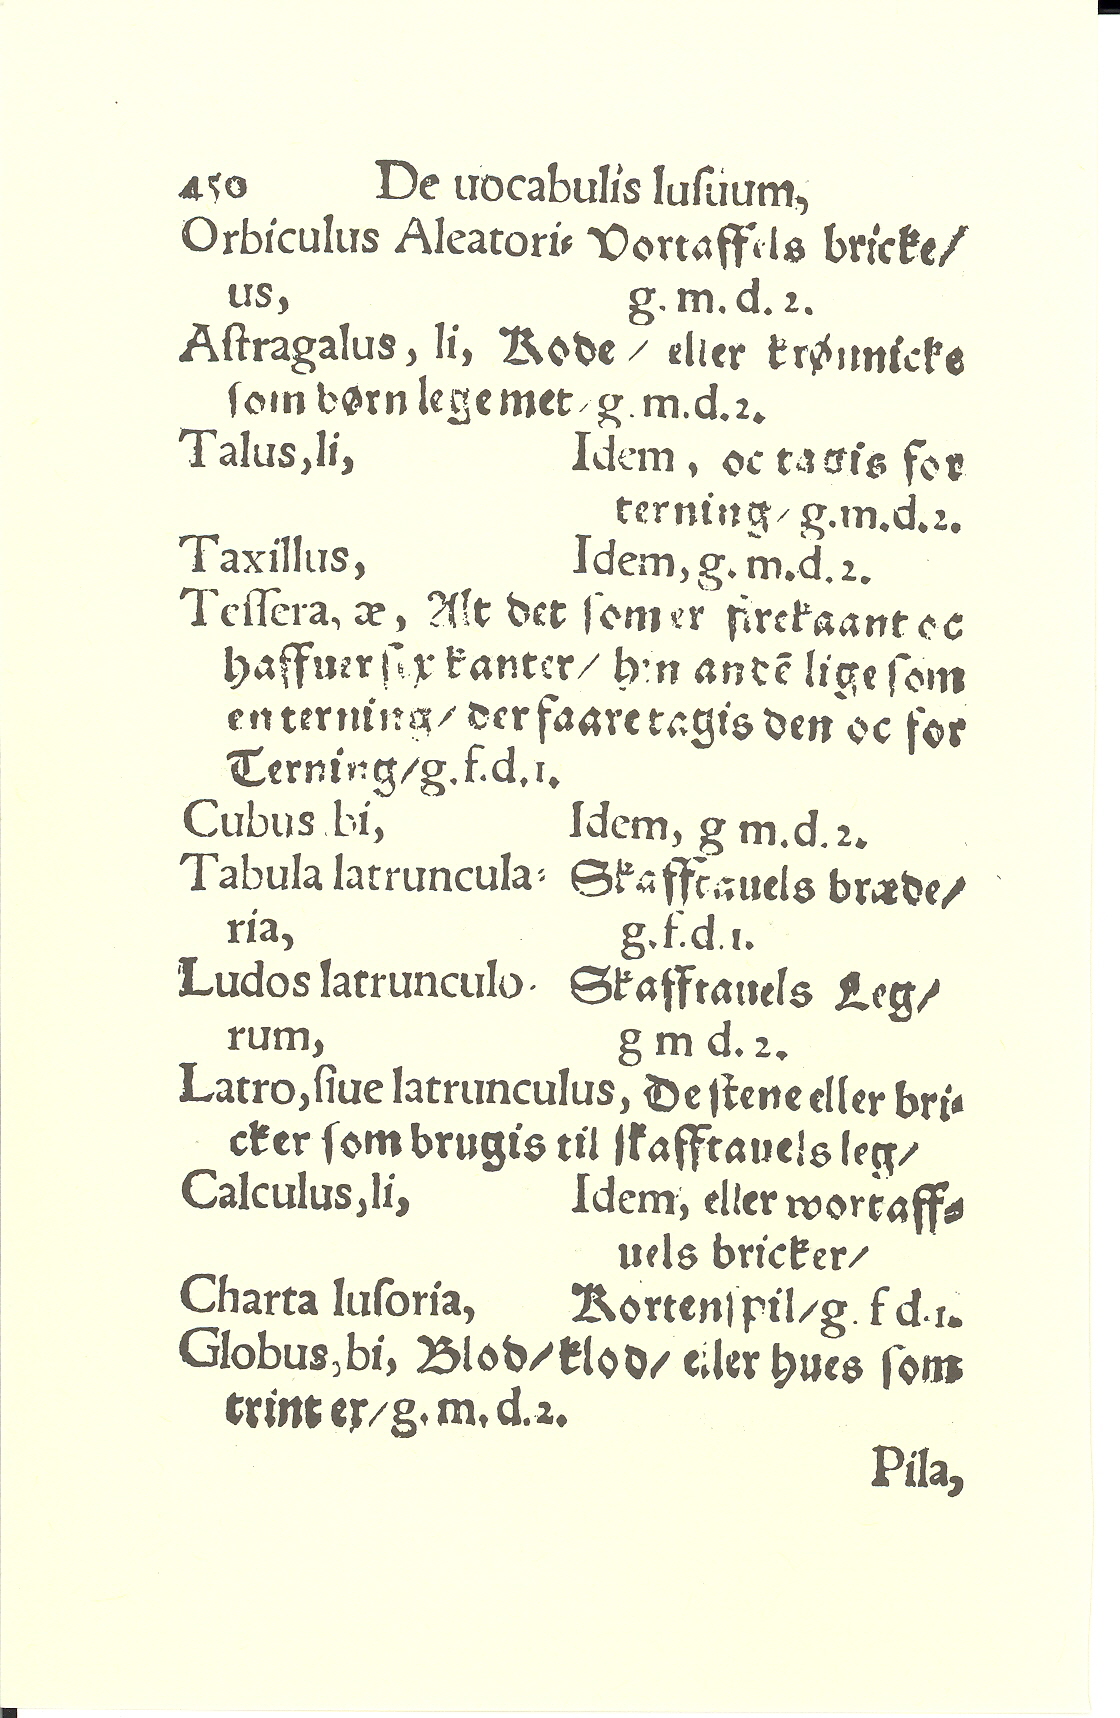 450 De uocabulis lusuum,
Orbiculus Aleatori⸗ Vortaffels bricke/
us, g. m. d. 2.
Aſtragalus, li, Kode / eller krønnicke
ſom børn lege met / g. m.d.2.
Talus,li, Idem, oc tagis for
terning/ g.m.d.2.
Taxillus, Idem, g. m.d.2.
Teſſera, æ, Alt det ſom er firekaant oc
haffuer ſex kanter/ lige ſom
en terning/ der faare tagis den oc for
Terning/g.f.d.1.
Cubus bi, Idem, g m.d.2.
Tabula latruncula⸗ Skafftauels bræde/
ria, g.f.d.1.
Ludos latrunculo⸗ Skafftauels Leg/
rum, g m d. 2.
Latro,ſiue latrunculus, De ſtene eller bri⸗
cker ſom brugis til ſkafftauels leg/
Calculus,li, Idem, eller wortaff⸗
uels bricker/
Charta luſoria, Kortenſpil/g. f d.1.
Globus,bi, Blod/klod/ eller hues ſom
trint er/g. m. d.2.
Pila,